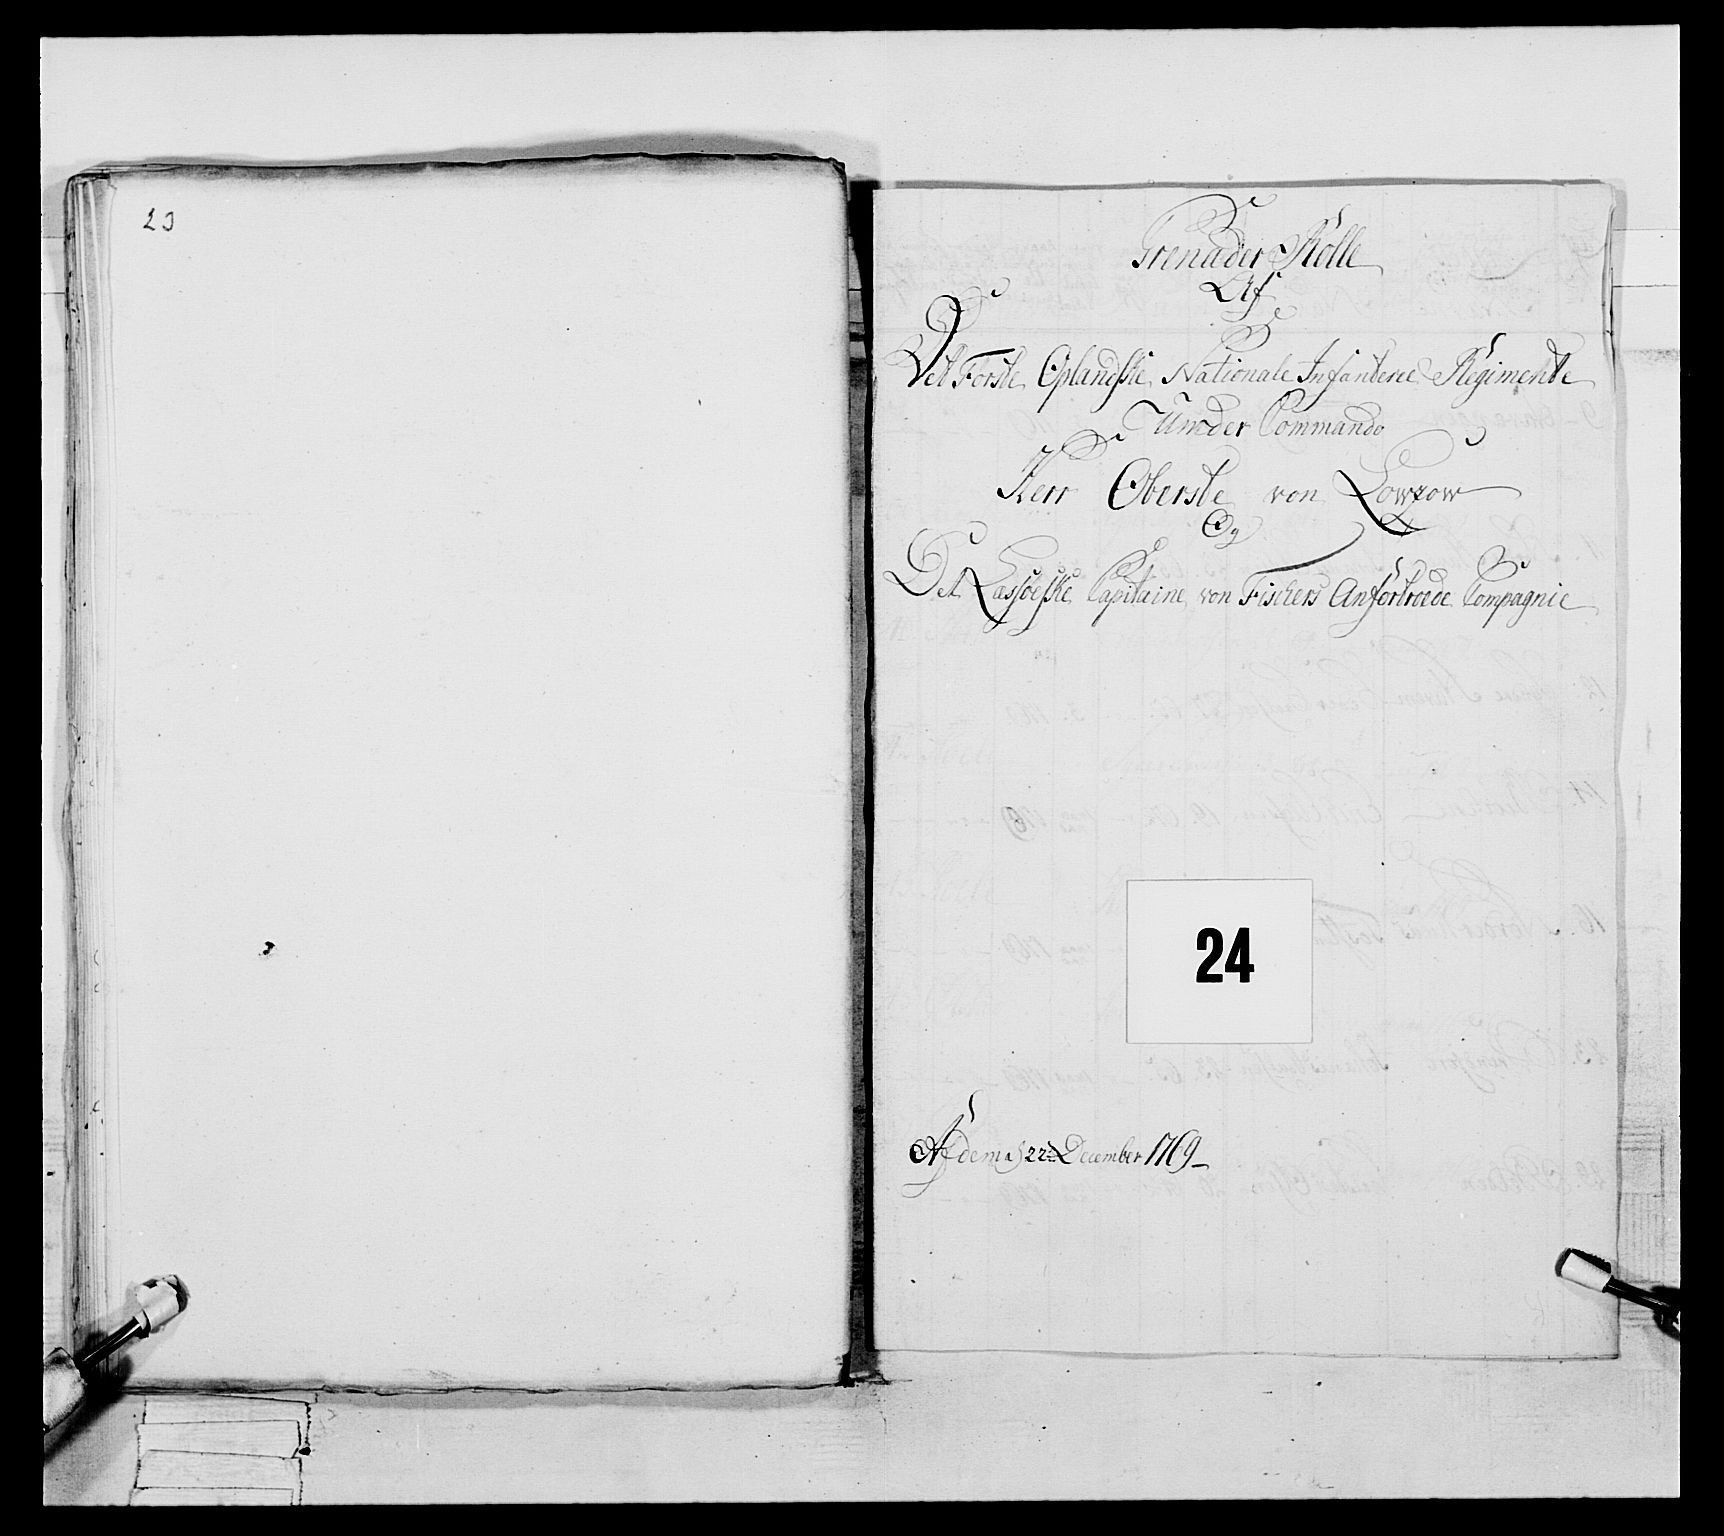 23
Grenader Rolle
Af
Det Første Oplandske Nationale Infanterie Regimente
Under Commando
Herr Oberste von Lowzow
Og
Det Læssøeske Capitaine von Fischers Anfortroede Compagnie
24
Af dem 22de December 1769